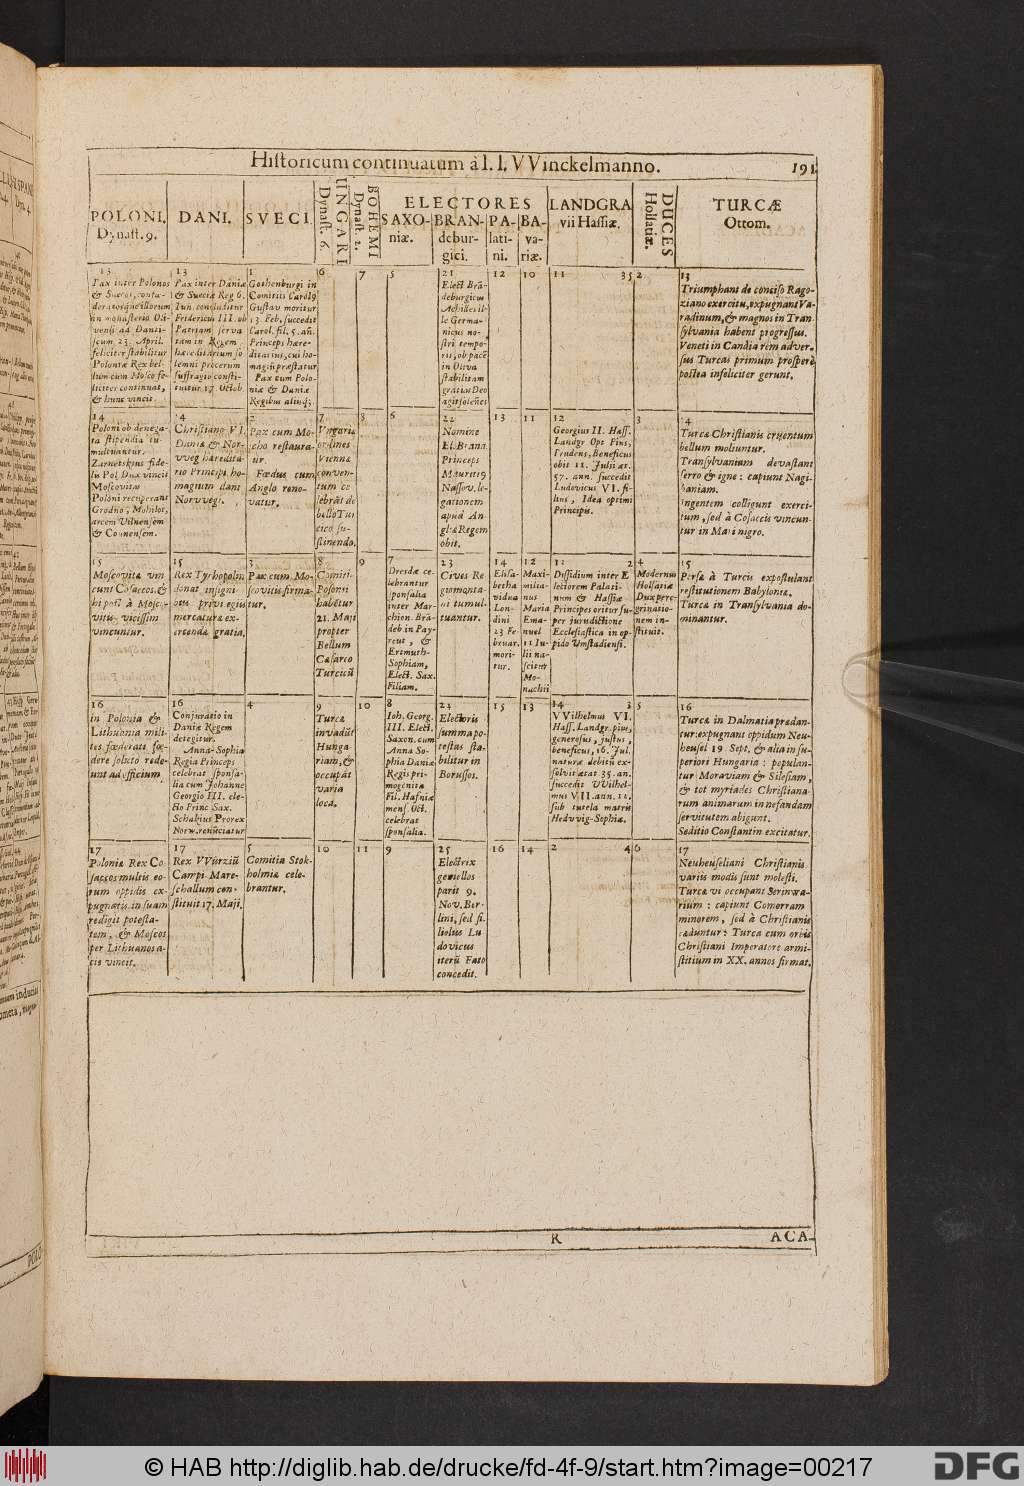 Historicum continuatum à I. I. VVinckelmanno.
191
POLONI.
Dynast. 9.
DANI.
SVECI.
UNGARI
Dynast. 6.
BOHEMI
Dynast. 2.
ELECTORES
SAXO-
niæ.
BRAN-
debur-
gici.
PA-
lati-
ni.
BA-
va-
riæ.
LANDGRA
vii Hassiæ.
DUCES
Holsatiæ.
TURCÆ
Ottom.
13
Pax inter Polonos
& Suecos, confœ-
deratosque illorum
in monasterio Oli-
vensi ad Danti-
scum 23. April.
feliciter stabilitur
Poloniæ Rex bel-
lum cum Mosco fe-
liciter continuat,
& hunc vincit
13
Pax inter Daniæ
& Sueciæ Reg. 6.
Iun. concluditur
Fridericus III. ob
Patriam serva
tam in Regem
hæreditarium so
lemni procerum
suffragio consti-
tuitur. 17. Octob.
1
Gothenburgi in
Comitiis Carol9
Gustav moritur
13. Feb. succedit
Carol. fil. 5. añ.
Princeps hære-
ditarius, cui ho-
magiũ præstatur
Pax cum Polo-
niæ & Daniæ
Regibus aliisq́;
6
7
5
21
Elect Brã-
deburgicus
Achilles il-
le Germa-
nicus no-
stri tempo-
ris, ob pacẽ
in Oliva
stabilitam
gratias Deo
agit solẽnes
12
10
11
35
2
13
Triumphant de conciso Rago-
ziano exercitu, expugnant Va-
radinum, & magnos in Tran-
sylvania habent progressus.
Veneti in Candia rem adver-
sus Turcas primum prosperè
postea infeliciter gerunt.
14
Poloni ob denega-
ta stipendia tu-
multuantur.
Zarnetskius fide-
lis Pol. Dux vincit
Moscovitas
Poloni recuperant
Grodno, Mohilor,
arcem Vilnensem
& Counensem.
14
Christiano VI.
Daniæ & Nor-
vveg hæredita-
rio Principi, ho-
magium dant
Norvvegi.
2
Pax cum Mo-
scho restaura-
tur.
Fœdus cum
Anglo reno-
vatur.
7
Vngariæ
ordines
Viennæ
conven-
tum ce
lebrãt de
bello Tur
cico su-
stinendo.
8
6
22
Nomine
El. Brand.
Princeps
Maurit9
Nassov. le-
gationem
apud An-
gliæ Regem
obit.
13
11
12
Georgius II. Hass.
Landgr Opt Pius,
Prudens, Beneficus
obit 11. Julii æt.
57. ann. succedit
Ludovicus VI. fi-
lius, Idea optimi
Principis.
3
14
Turcæ Christianis cruentum
bellum moliuntur.
Transylvanium devastant
ferro & igne: capiunt Nagi-
baniam.
Ingentem colligunt exerci-
tum, sed à Cosaccis vincun-
tur in Mari nigro.
15
Moscovitæ vin
cunt Cosaccos, &
hi post à Mosco-
vitis vicissim
vincuntur.
15
Rex Tyrhopolin
donat insigni-
oris privilegiis
mercaturæ ex-
ercendæ gratia.
3
Pax cum Mo-
scovitis firma-
tur.
8
Comiti-
Posonii
habẽtur
21. Maji
propter
Bellum
Cæsareo
Turcicũ
9
7
Dresdæ ce-
lebrantur
sponsalia
inter Mar-
chion. Brã-
deb in Pay-
reut, &
Erdmuth-
Sophiam,
Elect. Sax.
Filiam.
23
Cives Re-
giomonta-
ni tumul-
tuantur.
14
Elisa-
betha
vidua
Lon-
dini
23 Fe-
bruar.
mori-
tur.
12
Maxi-
milia-
nus
Maria
Ema-
nuel
11 Iu-
lii na-
scitur
Mo-
nachii
13
2
Dissidium inter E
lectorem Palati-
num & Hassiæ
Principes oritur su-
per jurisdictione
Ecclesiastica in op-
pido Umstadiensi.
4
Modernus
Holsatiæ
Dux pere-
grinatio-
nem in-
stituit.
15
Persæ à Turcis expostulant
restitutionem Babylonis.
Turcæ in Transylvania do-
minantur.
16
in Polonia &
Lithuania mili-
tes fœderati fœ-
dere soluto rede-
unt ad officium.
16
Conjuratio in
Daniæ Regem
detegitur.
Anna-Sophia
Regia Princeps
celebrat sponsa-
lia cum Johanne
Georgio III. ele-
cto Princ Sax.
Schakius Prorex
Norw. renũciatur
4
9
Turcæ
invadũt
Hunga
riam, &
occupãt
varia
loca.
10
8
Ioh. Georg.
III. Elect.
Saxon. cum
Anna So-
phia Daniæ
Regis pri-
mogenita
Fil. Hafniæ
mens. Oct.
celebrat
sponsalia.
24
Electoris
summa po-
testas sta-
bilitur in
Borussos.
15
13
14
3
VVilhelmus VI.
Hass. Landgr. pius,
generosus, justus,
beneficus, 16. Jul.
naturæ debitũ ex-
solvit ætat 35. an.
succedit VVilhel-
mus VII. ann. 12.
sub tutela matris
Hedvvig-Sophiæ.
5
16
Turcæ in Dalmatia prædan-
tur: expugnant oppidum Neu-
heusel 19 Sept. & alia in su-
periori Hungaria: populan-
tur Moraviam & Silesiam,
& tot myriades Christiana-
rum animarum in nefandam
servitutem abigunt.
Seditio Constantin excitatur.
17
Poloniæ Rex Co-
saccos multis eo-
rum oppidis ex-
pugnatis, in suam
redigit potesta-
tem, & Moscos
per Lithuanos a-
cis vincit.
17
Rex VVurziũ
Campi-Mare-
schallum con-
stituit 17. Maji.
5
Comitia Stok-
holmiæ cele-
brantur.
10
11
9
25
Electrix
gemellos
parit 9.
Nov. Ber-
lini, sed fi-
liolus Lu
dovicus
iterũ Fato
concedit.
16
14
2
4
6
17
Neuheuseliani Christianis
variis modis sunt molesti.
Turcæ vi occupant Serinwa-
rium: capiunt Comorram
minorem, sed à Christianis
cæduntur: Turca cum orbis
Christiani Imperatore armi-
stitium in XX. annos firmat.
R
ACA-
© HAB http://diglib.hab.de/drucke/fd-4f-9/start.htm?image=00217
DFG